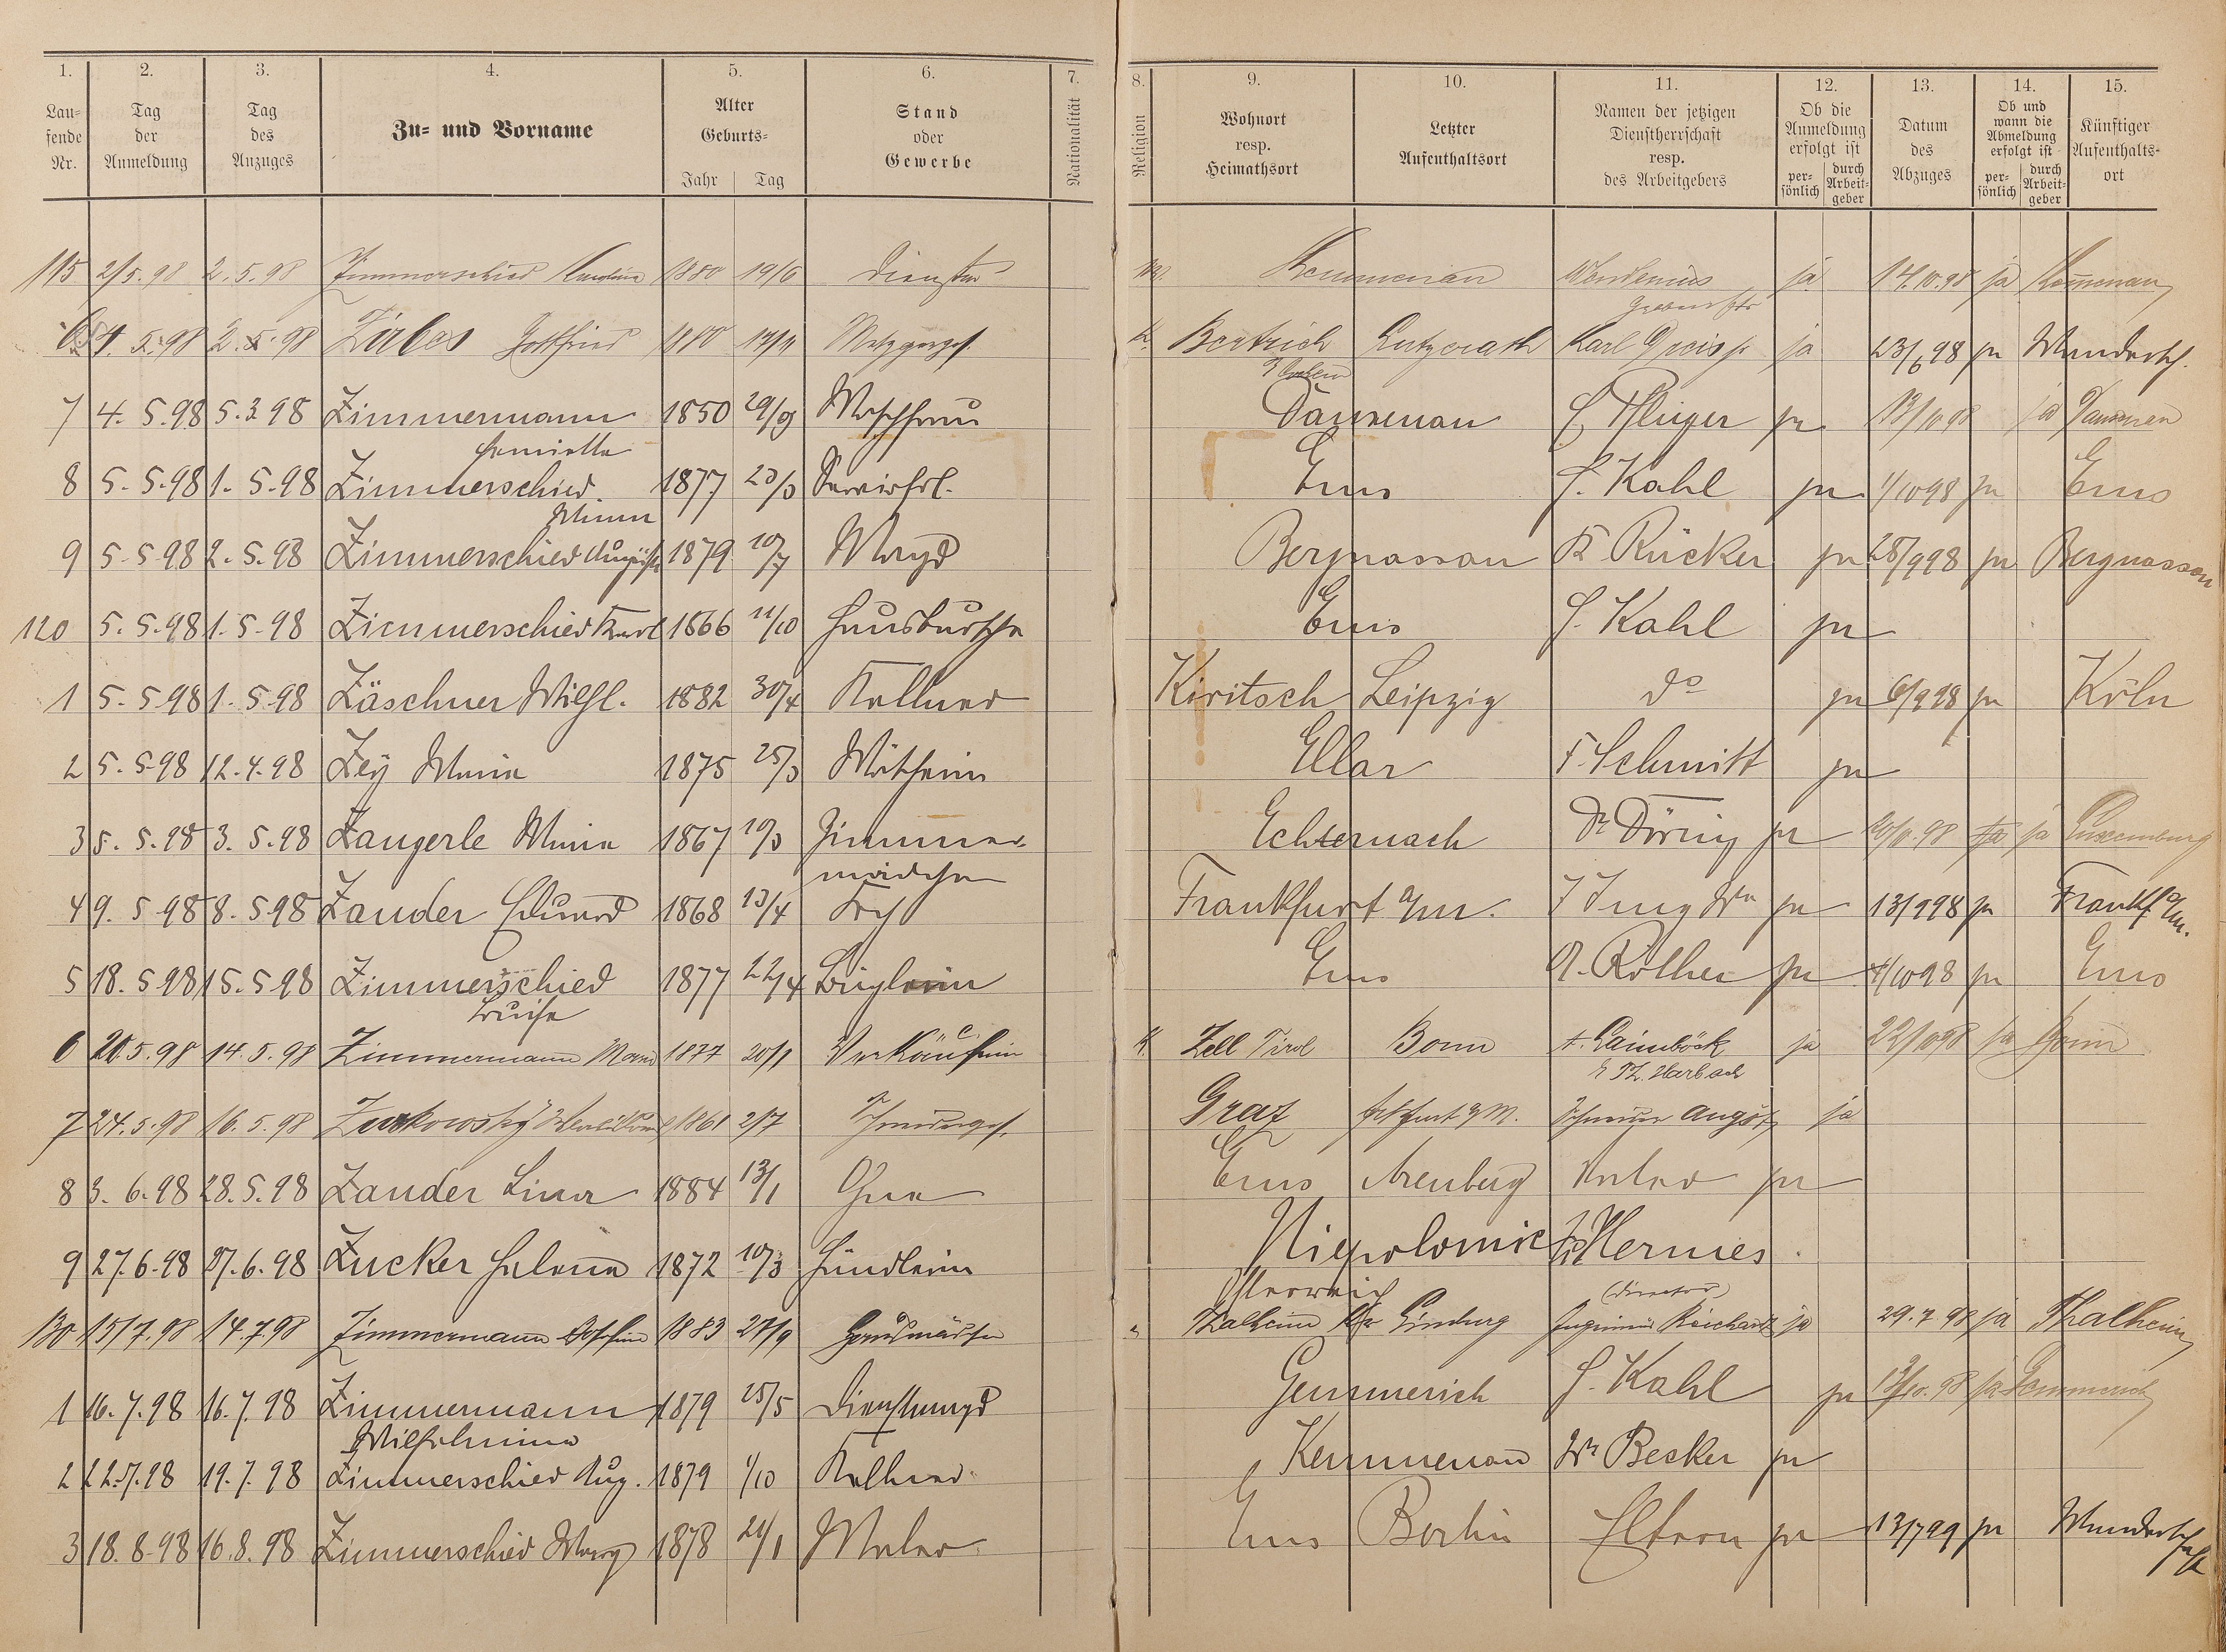 1. 2. 3. 4. 5. 6. 7. 8. 9. 10. 11. 12. 13. 14. 15.
Laufende Nr.
Tag der Anmeldung
Tag des Anzuges
Zu- und Vorname
Alter
Geburts-
Jahr Tag
Stand oder Gewerbe
Nationalität
Religion
Wohnort resp. Heimathsort
Letzter Aufenthaltsort
Namen der jetzigen Dienstherrschaft resp. des Arbeitgebers
Ob die Anmeldung erfolgt ist
persönlich durch Arbeitgeber
Datum des Abzuges
Ob und wann die Abmeldung erfolgt ist
persönlich durch Arbeitgeber
Künftiger Aufenthaltsort
115 2/5.98 2.5.98 Zimmerschied Karoline 1880 19/6 Kemmenau ja 14.10.98 ja Kemmenau
6 5.98 2.5.98 Zirbes Gottfried 1880 Metzgerges. Bertrich Lutzerath Karl Greis jr ja 23/6 98 ja Wandersch.
7 4.5.98 5.3.98 Zimmermann 1850 29/9 Waschfrau Dausenau H. Pflüger ja 13/10 98 ja Dausenau
Henriette
8 5.5.98 1.5.98 Zimmerschied. 1877 23/3 Servirfrl. Ems H. Kahl ja 1/10 98 ja Ems
Minna
9 5.5.98 2.5.98 Zimmerschied Auguste 1879 10/7 Magd Bergnassau K Rücker ja 28/9 98 ja Bergnassau
120 5.5.98 1.5.98 Zimmerschied Karl 1866 11/10 Hausbursche Ems H. Kahl ja
1 5.5.98 1.5.98 Zäschner Wilh. 1882 30/4 Kellner Kiritsch Leipzig do ja 6/9 98 ja Köln
2 5.5.98 12.4.98 Zey Maria 1875 25/3 Ellar F. Schmitt ja
3 5.5.98 3.5.98 Zangerle Maria 1867 10/3 Zimmer- Echternach Dr Döring ja 98 ja ja Luxemburg
mädchen
4 9.5.98 8.5.98 Zander Eduard 1868 13/4 Koch Frankfurt a/m. J Jung Wn ja 13/9 98 ja Frankf a/m.
5 18.5.98 15.5.98 Zimmerschied 1877 22/4 Büglerin Ems A. Röther ja 1/10 98 ja Ems
Luise
6 20.5.98 14.5.98 Zimmermann Maria 1877 20/1 Verkäuferin K. Zell Tirol Bonn A. Gaimböck ja 22/10 98 ja
Harbach
7 24.5.98 16.5.98 1861 2/7 Schneiderges. Graz Frkfurt a/M. Schneider Angst ja
8 3.6.98 28.5.98 Zander Lina 1884 13/1 Ohne Ems Arenberg Vater ja
9 27.6.98 27.6.98 Zucker Helena 1872 10/3 Händlerin Niepolomic Fr Hermes
Österreich
130 15/7.98 14.7.98 Zimmermann Josefine 1883 27/9 Hausmädchen Thalheim Kr Limburg Ingenieur Reichardt ja 29.7.98 ja Thalheim
(Director)
1 16.7.98 16.7.98 Zimmermann 1879 25/5 Dienstmagd Gemmerich H. Kahl ja 13/10.98 ja Gemmerich
Wilhelmine
2 22.7.98 19.7.98 Zimmerschied Aug. 1879 1/10 Kellner Kemmenau Wn Becker ja
3 18.8.98 16.8.98 Zimmerschied Marg 1878 21/1 Maler Ems Berlin Eltern ja 13/7 99 ja Wanderschaft